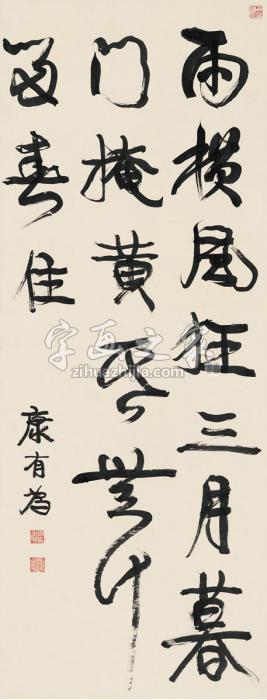 雨横风狂三月暮
门掩黄昏无计
留春住
康有为
字画之家
zihuazhijia.com